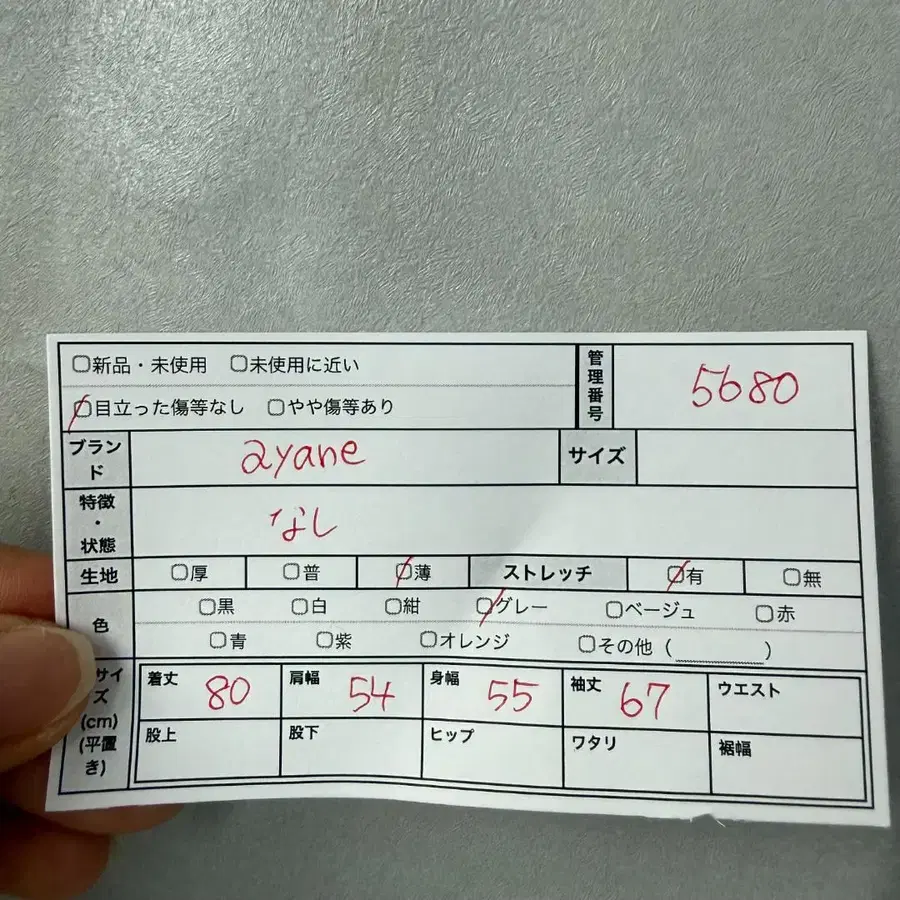 ▢新品・未使用 ▢未使用に近い
▢目立った傷等なし ▢やや傷等あり
管理番号 5680
ブランド ayane サイズ
特徴・状態 なし
生地 ▢厚 ▢普 ▢薄 ストレッチ ▢有 ▢無
色 ▢黒 ▢白 ▢紺 ▢グレー ▢ベージュ ▢赤
▢青 ▢紫 ▢オレンジ ▢その他 (________)
サイズ(cm)(平置き) 着丈 80 肩幅 54 身幅 55 袖丈 67 ウエスト
股上 股下 ヒップ ワタリ 裾幅